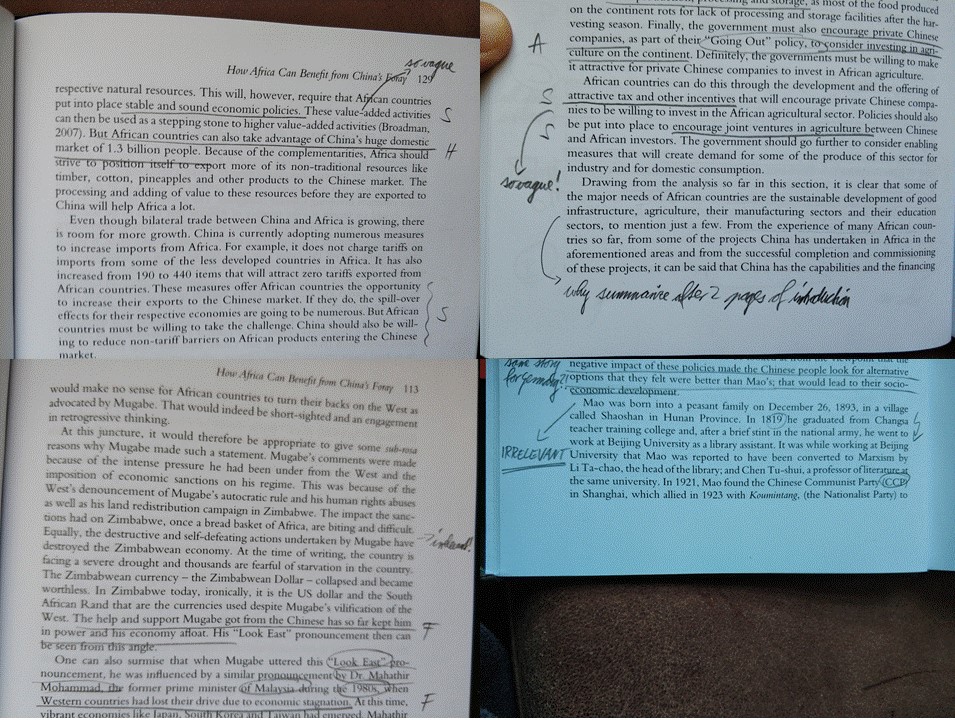 How Africa Can Benefit from China's Foray 129
so vague
respective natural resources. This will, however, require that African countries
put into place stable and sound economic policies. These value-added activities
S
can then be used as a stepping stone to higher value-added activities (Broadman,
2007). But African countries can also take advantage of China's huge domestic
market of 1.3 billion people. Because of the complementarities, Africa should
H
strive to position itself to export more of its non-traditional resources like
timber, cotton, pineapples and other products to the Chinese market. The
processing and adding of value to these resources before they are exported to
China will help Africa a lot.
Even though bilateral trade between China and Africa is growing, there
is room for more growth. China is currently adopting numerous measures
to increase imports from Africa. For example, it does not charge tariffs on
imports from some of the less developed countries in Africa. It has also
increased from 190 to 440 items that will attract zero tariffs exported from
African countries. These measures offer African countries the opportunity
to increase their exports to the Chinese market. If they do, the spill-over
effects for their respective economies are going to be numerous. But African
S
countries must be willing to take the challenge. China should also be will-
ing to reduce non-tariff barriers on African products entering the Chinese
market.
processing and storage, as most of the food produced
on the continent rots for lack of processing and storage facilities after the har-
vesting season. Finally, the government must also encourage private Chinese
A
companies, as part of their "Going Out" policy, to consider investing in agri-
culture on the continent. Definitely, the governments must be willing to make
it attractive for private Chinese companies to invest in African agriculture.
African countries can do this through the development and the offering of
S
attractive tax and other incentives that will encourage private Chinese compa-
nies to be willing to invest in the African agricultural sector. Policies should also
S
be put into place to encourage joint ventures in agriculture between Chinese
and African investors. The government should go further to consider enabling
measures that will create demand for some of the produce of this sector for
industry and for domestic consumption.
so vague!
Drawing from the analysis so far in this section, it is clear that some of
the major needs of African countries are the sustainable development of good
infrastructure, agriculture, their manufacturing sectors and their education
sectors, to mention just a few. From the experience of many African coun-
tries so far, from some of the projects China has undertaken in Africa in the
aforementioned areas and from the successful completion and commissioning
of these projects, it can be said that China has the capabilities and the financing
why summarize after 2 pages of introduction
How Africa Can Benefit from China's Foray 113
would make no sense for African countries to turn their backs on the West as
advocated by Mugabe. That would indeed be short-sighted and an engagement
in retrogressive thinking.
At this juncture, it would therefore be appropriate to give some sub-rosa
reasons why Mugabe made such a statement. Mugabe's comments were made
because of the intense pressure he had been under from the West and the
imposition of economic sanctions on his regime. This was because of the
West's denouncement of Mugabe's autocratic rule and his human rights abuses
as well as his land redistribution campaign in Zimbabwe. The impact the sanc-
tions had on Zimbabwe, once a bread basket of Africa, are biting and difficult.
Equally, the destructive and self-defeating actions undertaken by Mugabe have
destroyed the Zimbabwean economy. At the time of writing, the country is
facing a severe drought and thousands are fearful of starvation in the country.
The Zimbabwean currency – the Zimbabwean Dollar – collapsed and became
worthless. In Zimbabwe today, ironically, it is the US dollar and the South
African Rand that are the currencies used despite Mugabe's vilification of the
West. The help and support Mugabe got from the Chinese has so far kept him
F
in power and his economy afloat. His "Look East" pronouncement then can
be seen from this angle.
One can also surmise that when Mugabe uttered this "Look East" pro-
nouncement, he was influenced by a similar pronouncement by Dr. Mahathir
Mohammad, the former prime minister of Malaysia during the 1980s, when
Western countries had lost their drive due to economic stagnation. At this time,
F
vibrant economies like Japan, South Korea and Taiwan had emerged. Mahathir
same story
for Germany?
negative impact of these policies made the Chinese people look for alternative
options that they felt were better than Mao's; that would lead to their socio-
economic development.
Mao was born into a peasant family on December 26, 1893, in a village
called Shaoshan in Hunan Province. In 1819 he graduated from Changia
teacher training college and, after a brief stint in the national army, he went to
work at Beijing University as a library assistant. It was while working at Beijing
IRRELEVANT
University that Mao was reported to have been converted to Marxism by
Li Ta-chao, the head of the library; and Chen Tu-shui, a professor of literature at
the same university. In 1921, Mao found the Chinese Communist Party (CCP)
in Shanghai, which allied in 1923 with Koumintang, (the Nationalist Party) to